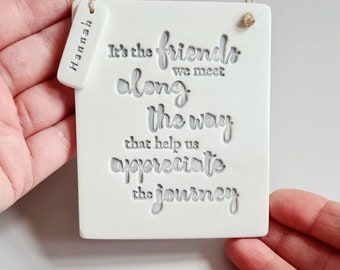 Hannah
It's the friends
we meet
along
the way
that help us
appreciate
the journey